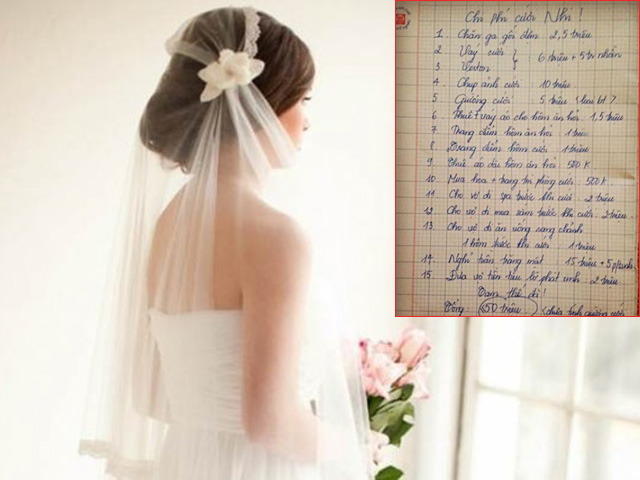 Chi phí cưới Nhi!
1. Chăn ga gối đệm 2,5 triệu
2. Váy cưới
: 6 triệu + 5 tr nhẫn
3. Veston
4. Chụp ảnh cưới 10 triệu
5. Giường cưới 5 triệu
6. Thuê váy áo cho hôm ăn hỏi 1,5 triệu
7. Trang điểm hôm ăn hỏi 1 triệu
8. Trang điểm hôm cưới 1 triệu
9. Thuê áo dài hôm ăn hỏi 500 K
10. Mua hoa + trang trí phòng cưới 500 K
11. Cho vợ đi spa trước khi cưới 2 triệu
12. Cho vợ đi mua sắm trước khi cưới 2 triệu
13. Cho vợ đi ăn uống sang chảnh
1 hôm trước khi cưới 1 triệu
14. Nghỉ tuần trăng mật 15 triệu +
15. Đưa vợ tiền tiêu lt phát sinh 2 triệu
Tạm thế đã!
Tổng 50 triệu